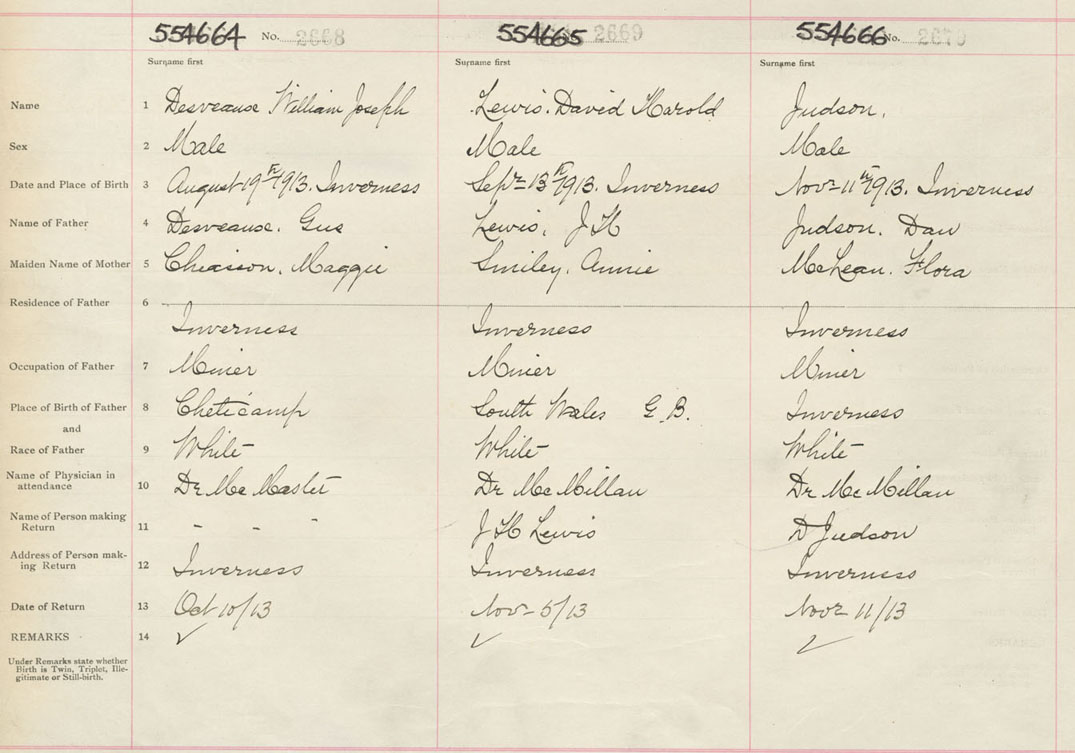 554664 No. 2668 554665 2669 554666 No. 2670
Surname first Surname first Surname first
Name 1 Desveause William Joseph Lewis. David Harold Judson.
Sex 2 Male Male Male
Date and Place of Birth 3 August 19th 1913. Inverness Sepr 13th 1913. Inverness Novr 11th 1913. Inverness
Name of Father 4 Desveause. Gus Lewis, J H Judson. Dan
Maiden Name of Mother 5 Chiasson. Maggie Smiley. Annie McLean. Flora
Residence of Father 6
Inverness Inverness Inverness
Occupation of Father 7 Miner Miner Miner
Place of Birth of Father 8 Cheticamp South Wales G.B. Inverness
and
Race of Father 9 White White White
Name of Physician in
attendance 10 Dr McMaster Dr McMillan Dr McMillan
Name of Person making
Return 11 - - - J H Lewis D Judson
Address of Person mak-
ing Return 12 Inverness Inverness Inverness
Date of Return 13 Oct 10/13 Nov 5/13 Novr 11/13
REMARKS 14 ✓ ✓ ✓
Under Remarks state whether
Birth is Twin, Triplet, Ille-
gitimate or Still-birth.